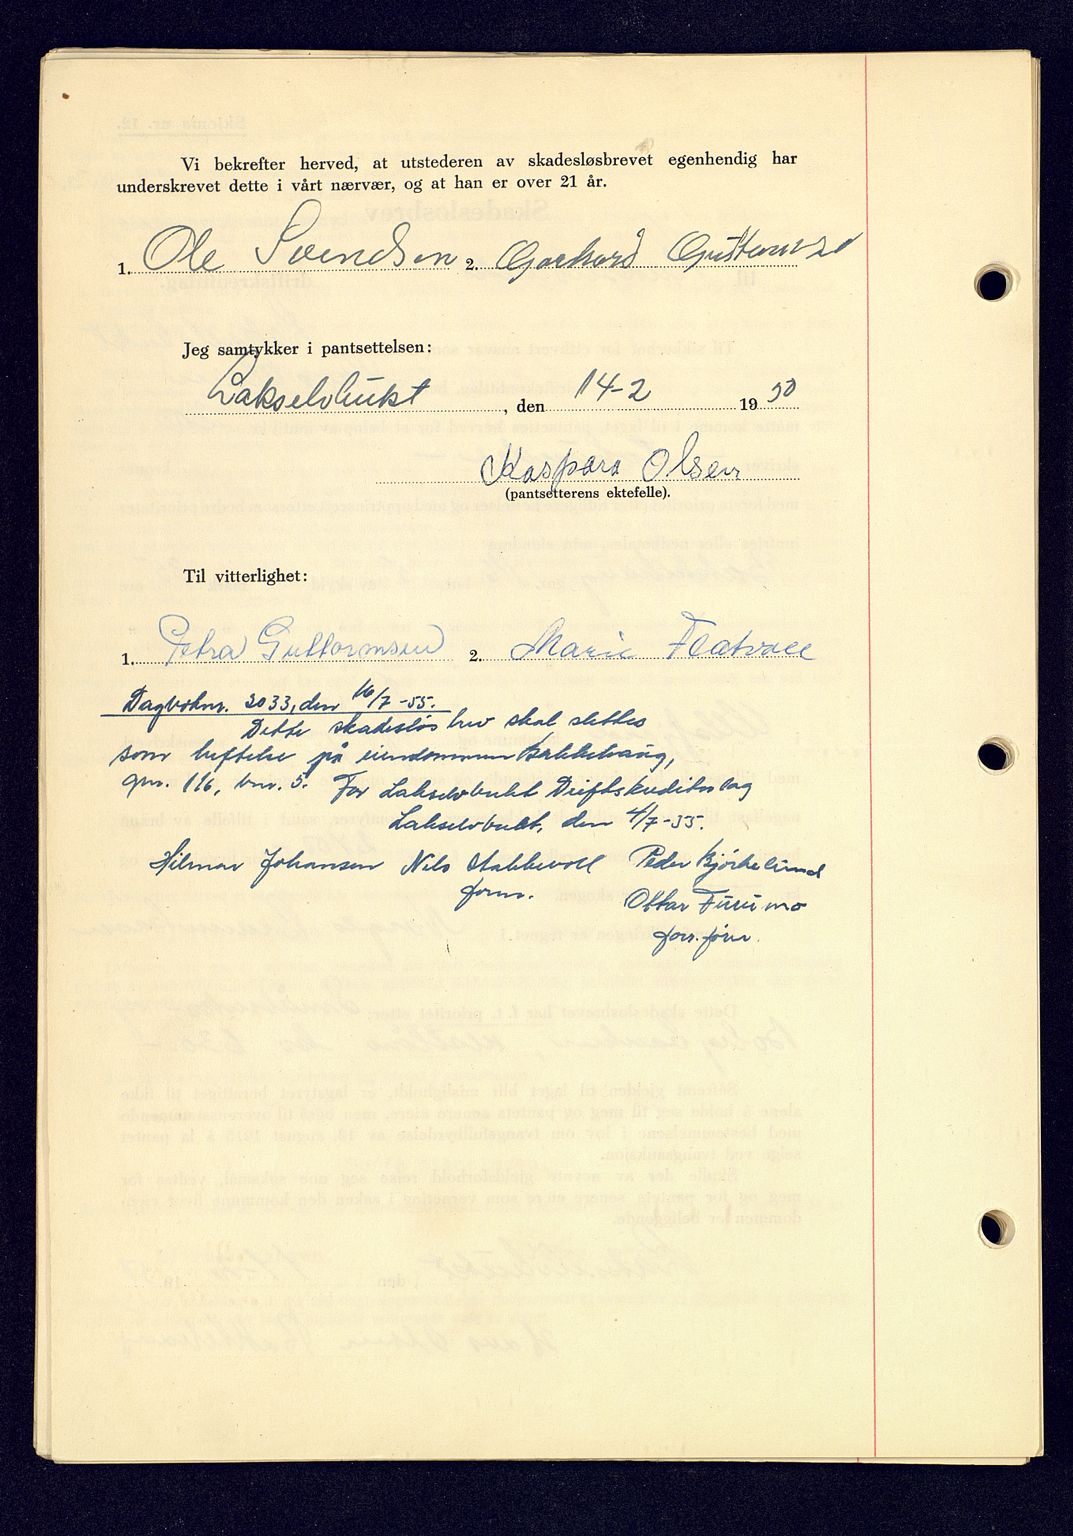 Vi bekrefter herved, at utstederen av skadesløsbrevet egenhendig har
underskrevet dette i vårt nærvær, og at han er over 21 år.
1. Ole Svendsen 2. Gerhard Gustavsen
Jeg samtykker i pantsettelsen:
Lakselvbukt, den 14-2 1950
Kaspara Olsen
(pantsetterens ektefelle).
Til vitterlighet:
1. Petra Guttormsen 2. Marie Flatvoll
Dagboknr. 2033, den 16/7-55.
Dette skadesløsbrev skal slettes
som heftelse på eiendommen Bakkehaug,
gnr. 116, bnr. 5. For Lakselvbukt Driftskredittlag
Lakselvbukt, den 4/7-55.
Hilmar Johansen Nils Stakkevoll Peder Bjørkelund
form. Ottar Furumo
forr.fører.